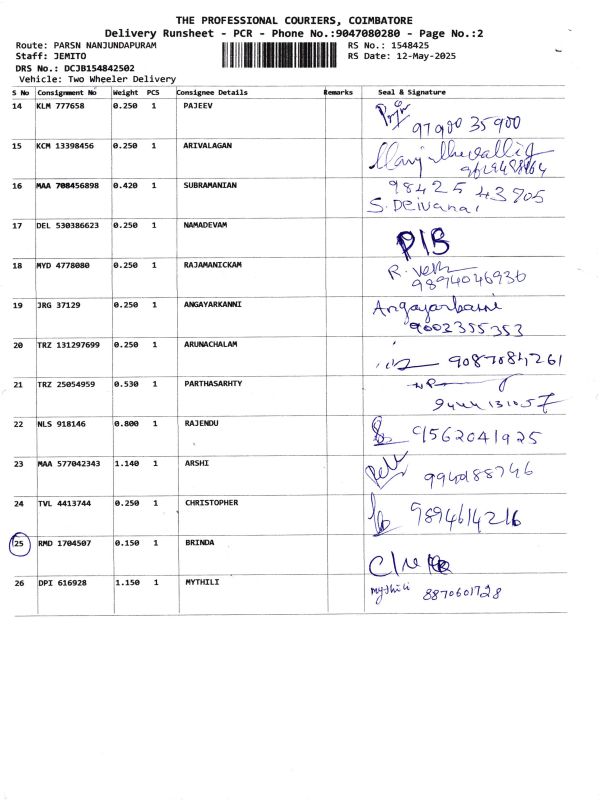 THE PROFESSIONAL COURIERS, COIMBATORE
Delivery Runsheet - PCR - Phone No.:9047080280 - Page No.:2
Route: PARSN NANJUNDAPURAM RS No.: 1548425
Staff: JEMITO RS Date: 12-May-2025
DRS No.: DCJB154842502
Vehicle: Two Wheeler Delivery
S No Consignment No Weight PCS Consignee Details Remarks Seal & Signature
14 KLM 777658 0.250 1 PAJEEV
97900 35900
15 KCM 13398456 0.250 1 ARIVALAGAN
16 MAA 708456898 0.420 1 SUBRAMANIAN 98425 43905
S. Deivanai
17 DEL 530386623 0.250 1 NAMADEVAM
P/B
18 MYD 4778080 0.250 1 RAJAMANICKAM R.
9894046936
19 JRG 37129 0.250 1 ANGAYARKANNI Angayarkanni
9002355353
20 TRZ 131297699 0.250 1 ARUNACHALAM
9087084261
21 TRZ 25054959 0.530 1 PARTHASARHTY
9444131057
22 NLS 918146 0.800 1 RAJENDU 9562041925
23 MAA 577042343 1.140 1 ARSHI 9940188746
24 TVL 4413744 0.250 1 CHRISTOPHER 9894614216
25 RMD 1704507 0.150 1 BRINDA
26 DPI 616928 1.150 1 MYTHILI mythili 8870601728